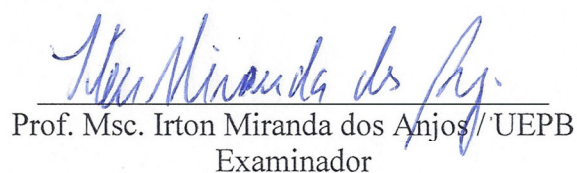 Irton Miranda dos Anjos
Prof. Msc. Irton Miranda dos Anjos / UEPB
Examinador